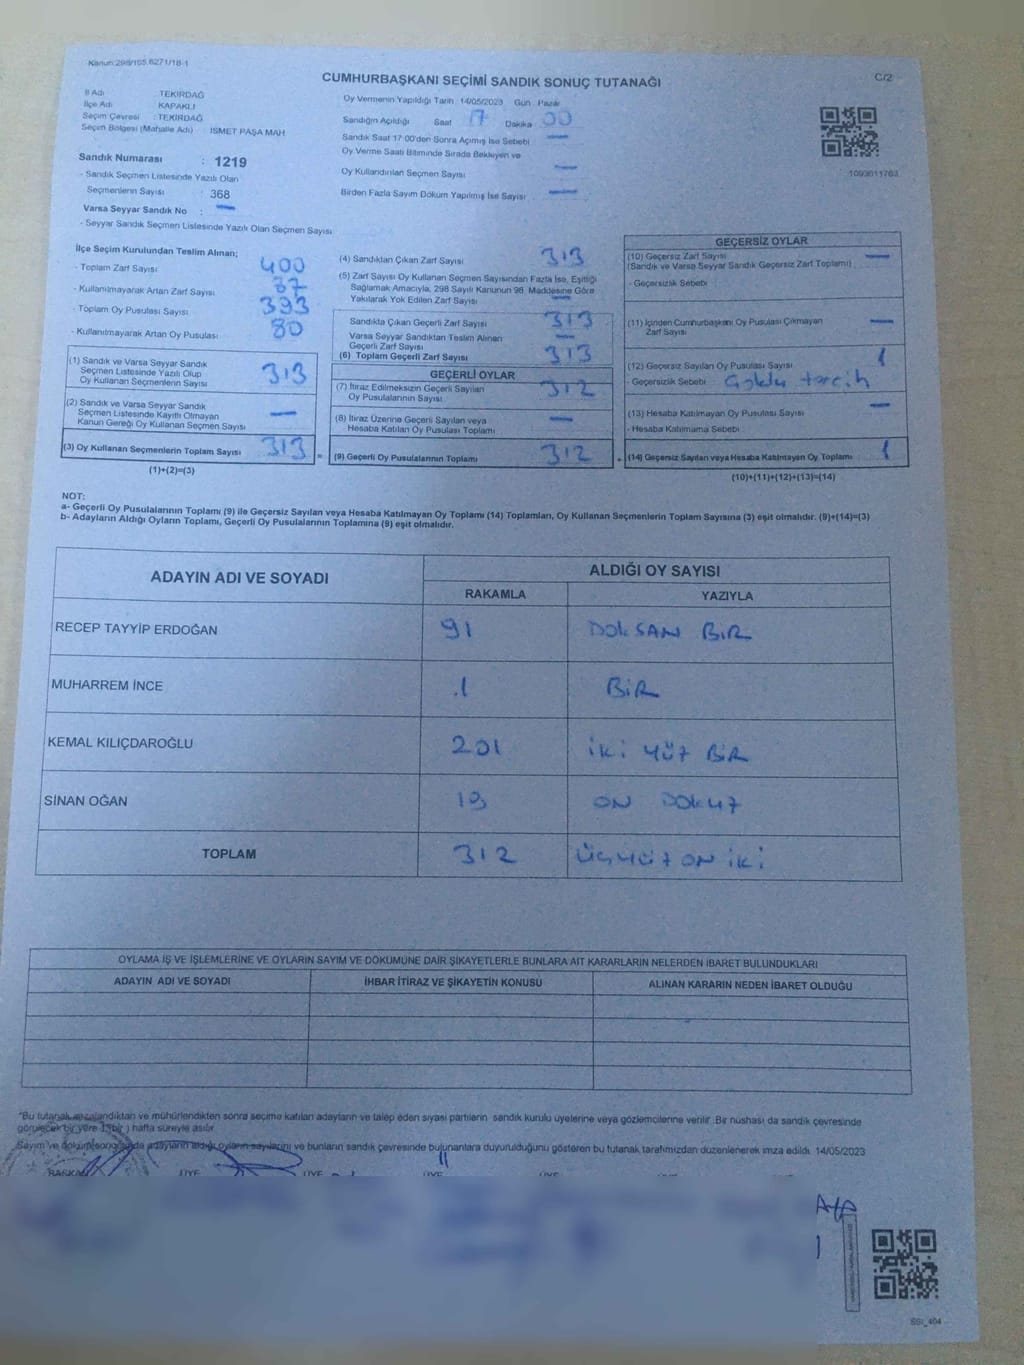 Kanun:298/105,6271/18-1
CUMHURBAŞKANI SEÇİMİ SANDIK SONUÇ TUTANAĞI
C/2
İl Adı : TEKİRDAĞ
İlçe Adı : KAPAKLI
Seçim Çevresi : TEKİRDAĞ
Seçim Bölgesi (Mahalle Adı) : İSMET PAŞA MAH
Sandık Numarası : 1219
- Sandık Seçmen Listesinde Yazılı Olan
Seçmenlerin Sayısı : 368
Varsa Seyyar Sandık No : —
- Seyyar Sandık Seçmen Listesinde Yazılı Olan Seçmen Sayısı
Oy Vermenin Yapıldığı Tarih : 14/05/2023 Gün : Pazar
Sandığın Açıldığı Saat 17 Dakika 00
Sandık Saat 17:00'den Sonra Açımış İse Sebebi —
Oy Verme Saati Bitiminde Sırada Bekleyen ve
Oy Kullandırılan Seçmen Sayısı —
Birden Fazla Sayım Döküm Yapılmış İse Sayısı —
1093611763
İlçe Seçim Kurulundan Teslim Alınan;
- Toplam Zarf Sayısı 400
- Kullanılmayarak Artan Zarf Sayısı 87
- Toplam Oy Pusulası Sayısı 393
- Kullanılmayarak Artan Oy Pusulası 80
(1) Sandık ve Varsa Seyyar Sandık
Seçmen Listesinde Yazılı Olup
Oy Kullanan Seçmenlerin Sayısı 313
(2) Sandık ve Varsa Seyyar Sandık
Seçmen Listesinde Kayıtlı Olmayan
Kanun Gereği Oy Kullanan Seçmen Sayısı —
(3) Oy Kullanan Seçmenlerin Toplam Sayısı 313
(1)+(2)=(3)
(4) Sandıktan Çıkan Zarf Sayısı 313
(5) Zarf Sayısı Oy Kullanan Seçmen Sayısından Fazla İse, Eşitliği
Sağlamak Amacıyla, 298 Sayılı Kanunun 98. Maddesine Göre
Yakılarak Yok Edilen Zarf Sayısı —
Sandıkta Çıkan Geçerli Zarf Sayısı 313
Varsa Seyyar Sandıktan Teslim Alınan
Geçerli Zarf Sayısı —
(6) Toplam Geçerli Zarf Sayısı 313
GEÇERLİ OYLAR
(7) İtiraz Edilmeksizin Geçerli Sayılan
Oy Pusulalarının Sayısı 312
(8) İtiraz Üzerine Geçerli Sayılan veya
Hesaba Katılan Oy Pusulası Toplamı —
= (9) Geçerli Oy Pusulalarının Toplamı 312
GEÇERSİZ OYLAR
(10) Geçersiz Zarf Sayısı —
(Sandık ve Varsa Seyyar Sandık Geçersiz Zarf Toplamı)
- Geçersizlik Sebebi
(11) İçinden Cumhurbaşkanı Oy Pusulası Çıkmayan
Zarf Sayısı —
(12) Geçersiz Sayılan Oy Pusulası Sayısı 1
- Geçersizlik Sebebi Çoklu tercih
(13) Hesaba Katılmayan Oy Pusulası Sayısı —
- Hesaba Katılmama Sebebi
+ (14) Geçersiz Sayılan veya Hesaba Katılmayan Oy Toplamı 1
(10)+(11)+(12)+(13)=(14)
NOT:
a- Geçerli Oy Pusulalarının Toplamı (9) ile Geçersiz Sayılan veya Hesaba Katılmayan Oy Toplamı (14) Toplamları, Oy Kullanan Seçmenlerin Toplam Sayısına (3) eşit olmalıdır. (9)+(14)=(3)
b- Adayların Aldığı Oyların Toplamı, Geçerli Oy Pusulalarının Toplamına (9) eşit olmalıdır.
ADAYIN ADI VE SOYADI
ALDIĞI OY SAYISI
RAKAMLA YAZIYLA
RECEP TAYYİP ERDOĞAN 91 DOKSAN BİR
MUHARREM İNCE .1 BİR
KEMAL KILIÇDAROĞLU 201 İKİ YÜZ BİR
SİNAN OĞAN 19 ON DOKUZ
TOPLAM 312 ÜÇYÜZ ON İKİ
OYLAMA İŞ VE İŞLEMLERİNE VE OYLARIN SAYIM VE DÖKÜMÜNE DAİR ŞİKAYETLERLE BUNLARA AİT KARARLARIN NELERDEN İBARET BULUNDUKLARI
ADAYIN ADI VE SOYADI İHBAR İTİRAZ VE ŞİKAYETİN KONUSU ALINAN KARARIN NEDEN İBARET OLDUĞU
*Bu tutanak imzalandıktan ve mühürlendikten sonra seçime katılan adayların ve talep eden siyasi partilerin sandık kurulu üyelerine veya gözlemcilerine verilir. Bir nüshası da sandık çevresinde
görülecek bir yere 1 (bir) hafta süreyle asılır.
Sayım ve döküm sonucunda adayların aldığı oyların sayılarını ve bunların sandık çevresinde bulunanlara duyurulduğunu gösteren bu tutanak tarafımızdan düzenlenerek imza edildi. 14/05/2023
BAŞKAN ÜYE ÜYE ÜYE ÜYE
SSI_404